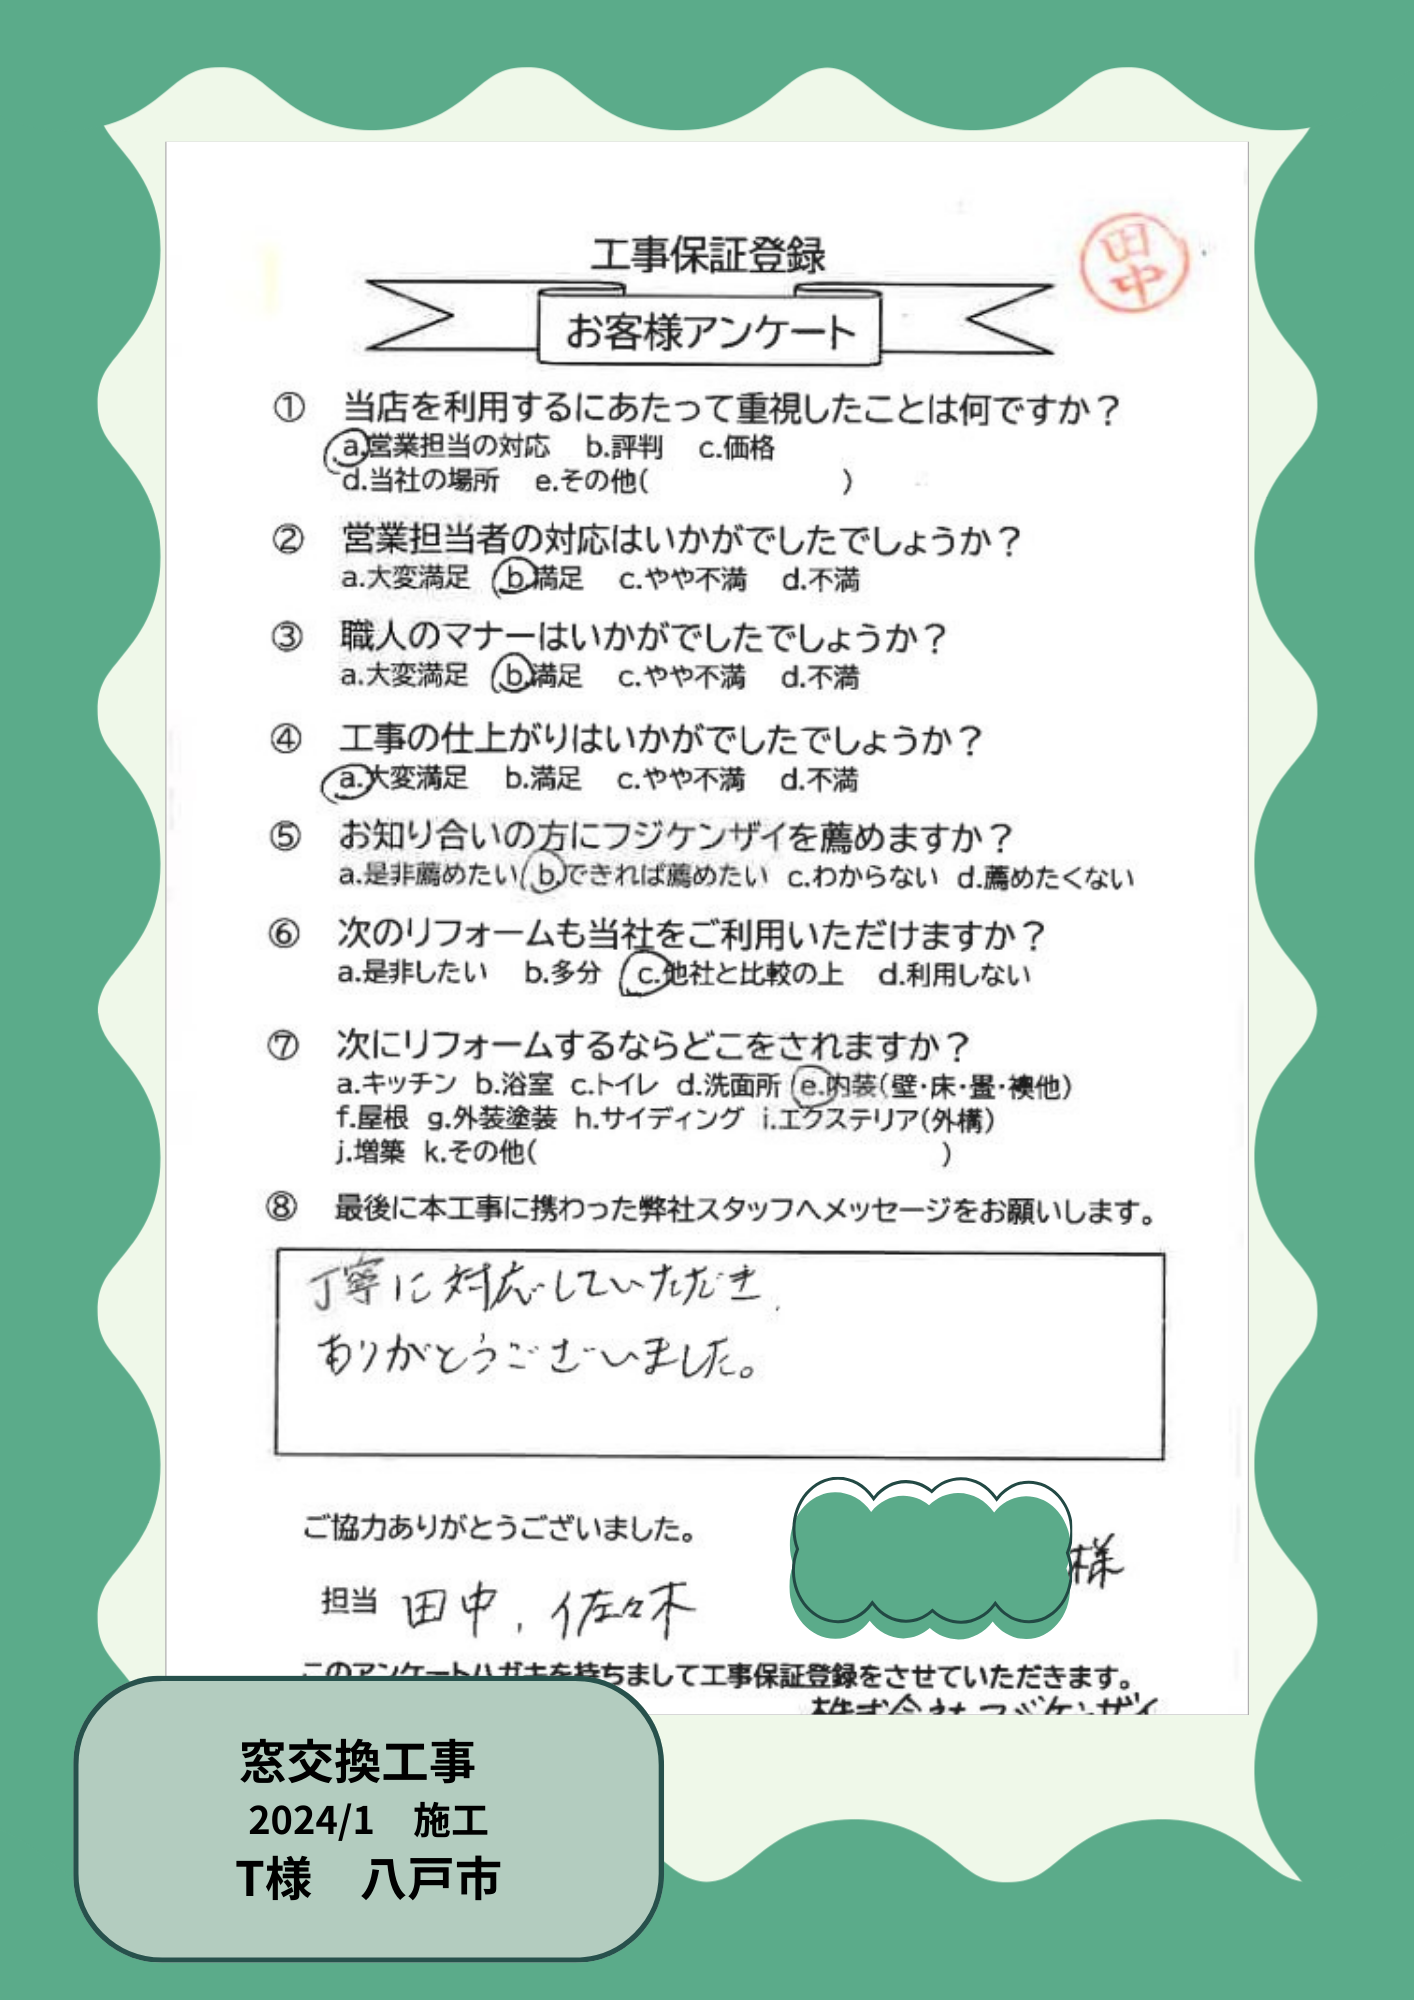 工事保証登録
田中
お客様アンケート
① 当店を利用するにあたって重視したことは何ですか？
a.営業担当の対応 b.評判 c.価格
d.当社の場所 e.その他( )
② 営業担当者の対応はいかがでしたでしょうか？
a.大変満足 b.満足 c.やや不満 d.不満
③ 職人のマナーはいかがでしたでしょうか？
a.大変満足 b.満足 c.やや不満 d.不満
④ 工事の仕上がりはいかがでしたでしょうか？
a.大変満足 b.満足 c.やや不満 d.不満
⑤ お知り合いの方にフジケンザイを薦めますか？
a.是非薦めたい b.できれば薦めたい c.わからない d.薦めたくない
⑥ 次のリフォームも当社をご利用いただけますか？
a.是非したい b.多分 c.他社と比較の上 d.利用しない
⑦ 次にリフォームするならどこをされますか？
a.キッチン b.浴室 c.トイレ d.洗面所 e.内装(壁・床・畳・襖他)
f.屋根 g.外装塗装 h.サイディング i.エクステリア(外構)
j.増築 k.その他( )
⑧ 最後に本工事に携わった弊社スタッフへメッセージをお願いします。
丁寧に対応していただき、
ありがとうございました。
ご協力ありがとうございました。
様
担当 田中、佐々木
このアンケートハガキを持ちまして工事保証登録をさせていただきます。
株式会社フジケンザイ
窓交換工事
2024/1 施工
T様 八戸市